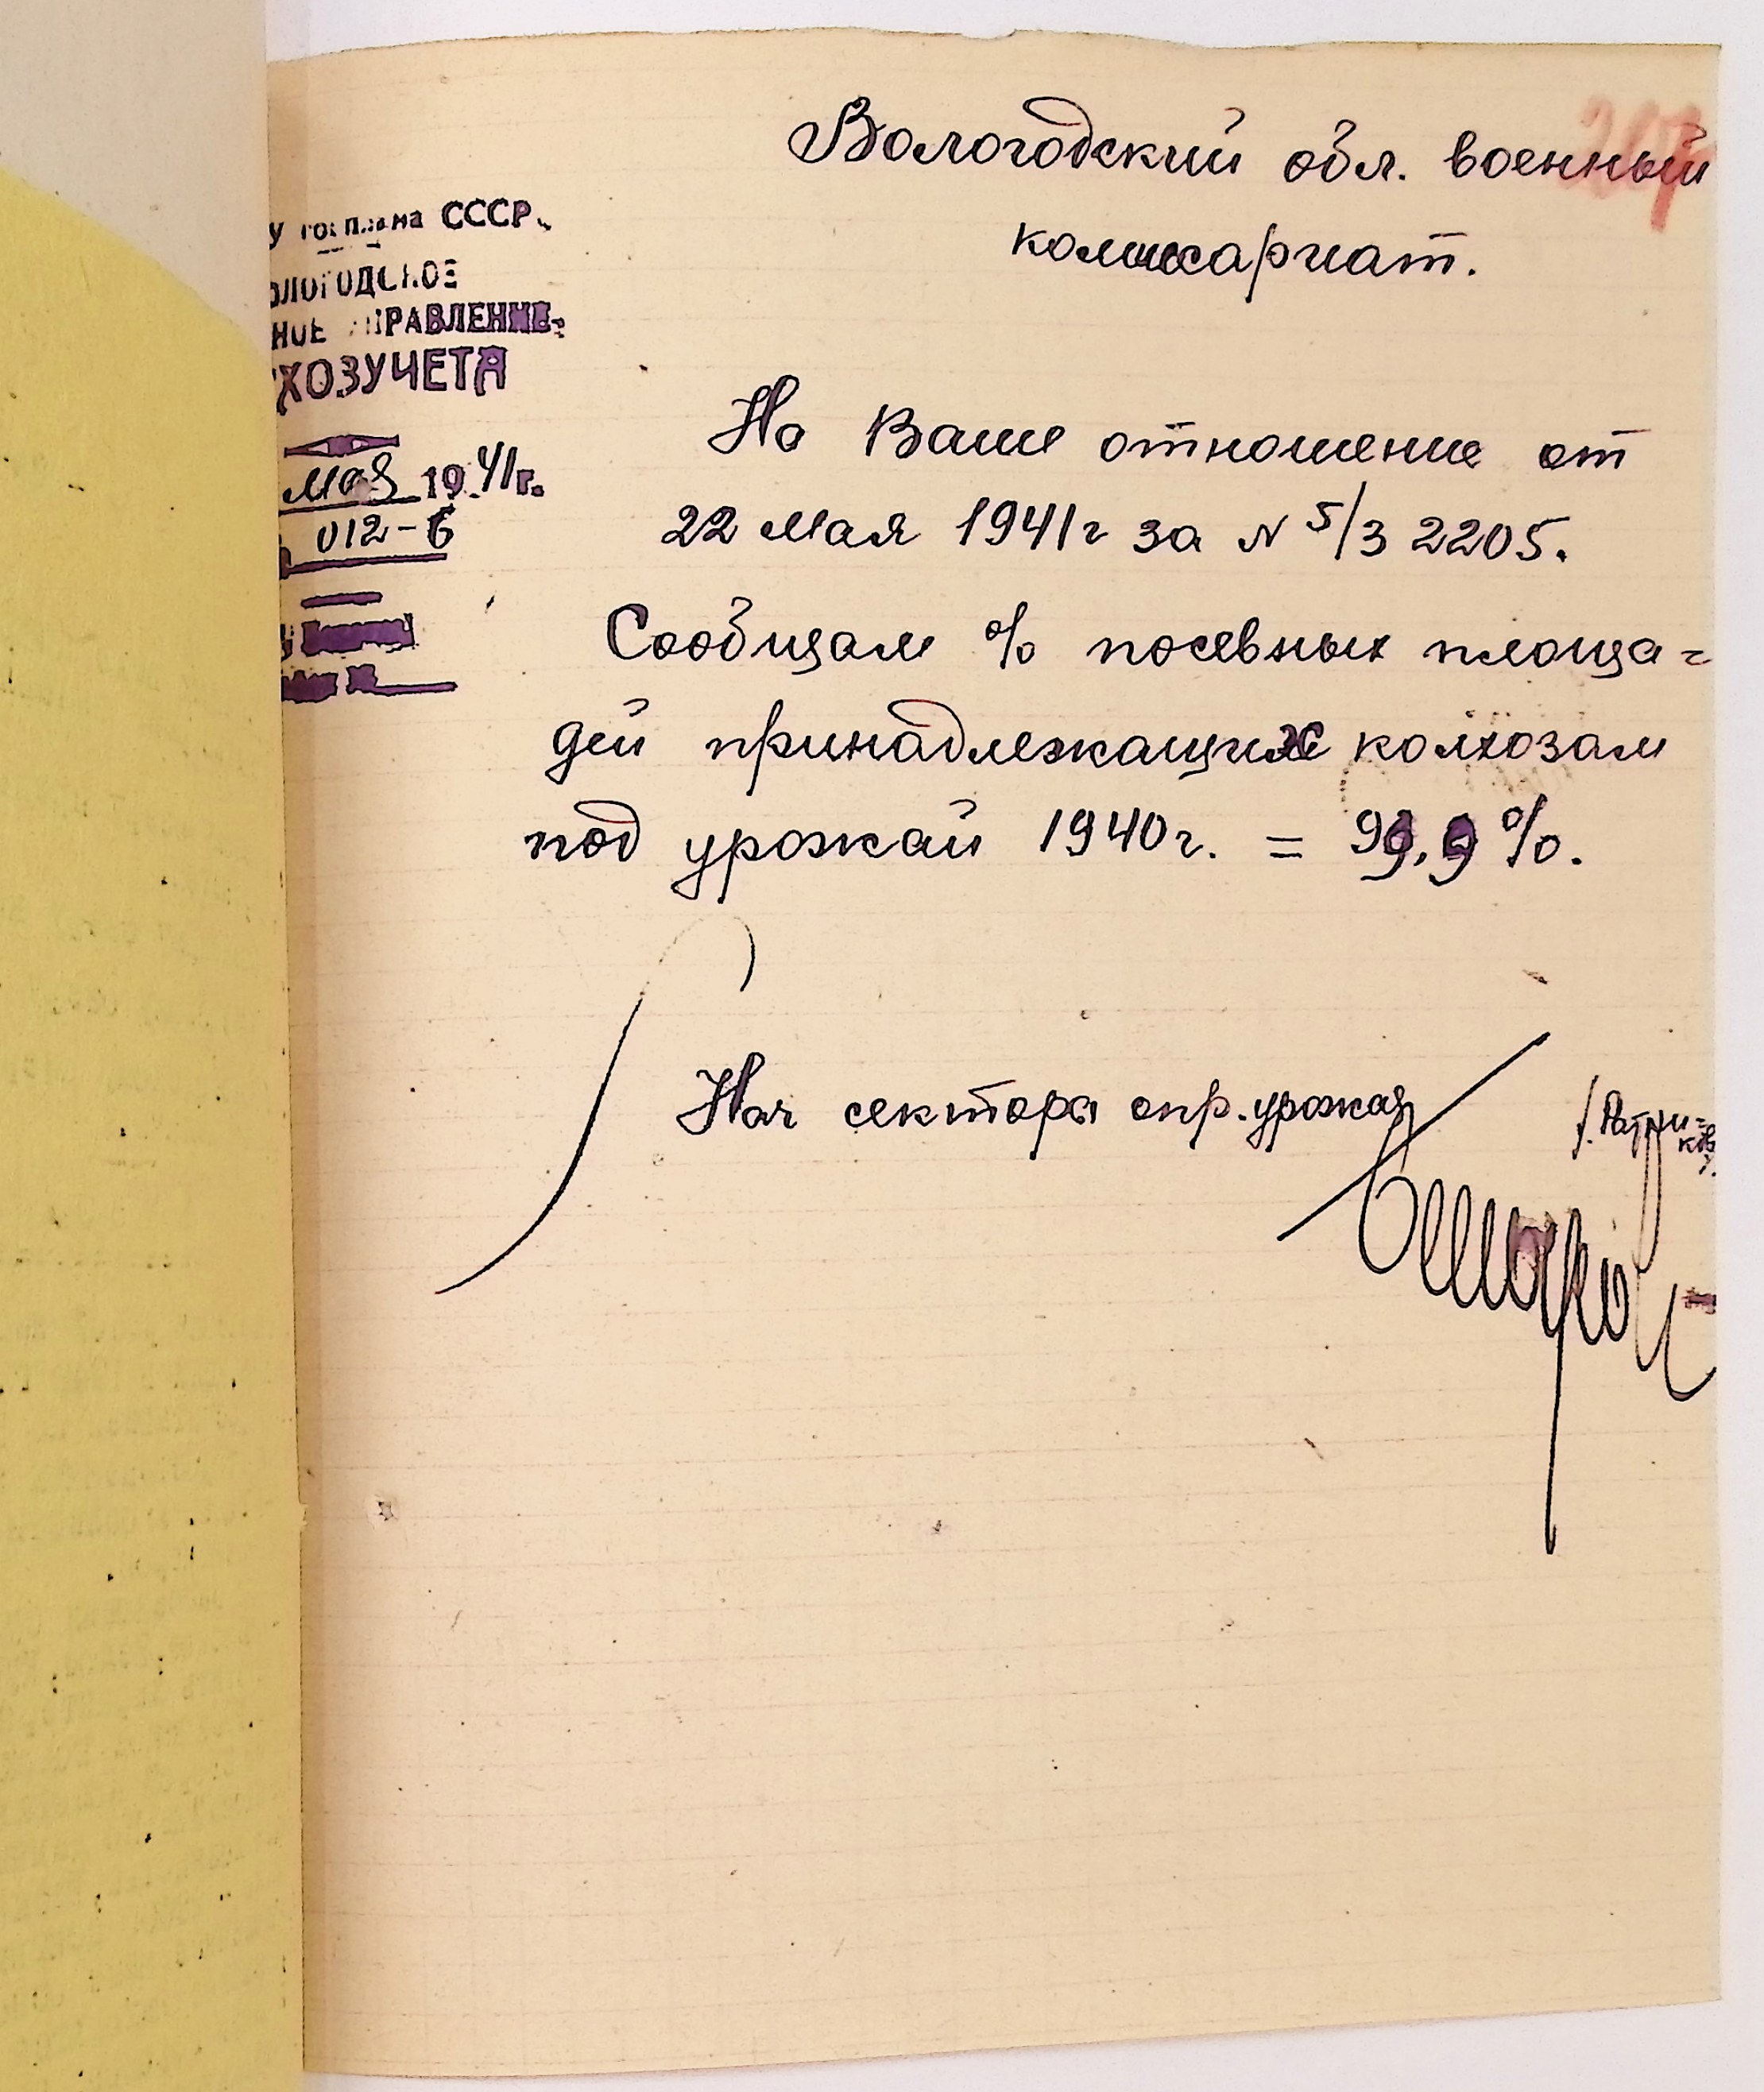 Вологодский обл. военный
комиссариат.
СССР.
ОЛОГОДСКОЕ
НОЕ УПРАВЛЕНИЕ
ХОЗУЧЕТА
мая 1941г.
012-6
На Ваше отношение от
22 мая 1941г за N 5/3 2205.
Сообщам % посевных площа=
дей принадлежащих колхозам
под урожай 1940г. = 99,9 %.
Нач сектора опр. урожая